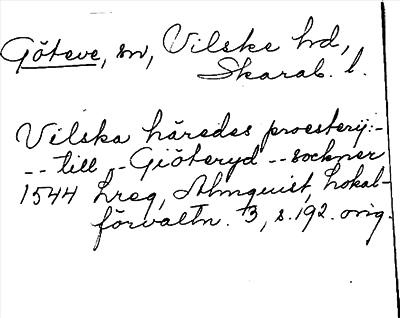 Göteve, sn, Vilske hd,
Skarab. l.
Vilska häredes proesterij:-
-- till -- Giöteryd -- sockner
1544 Lreg, Almquist, Lokal-
förvaltn. 3, s. 192. orig.